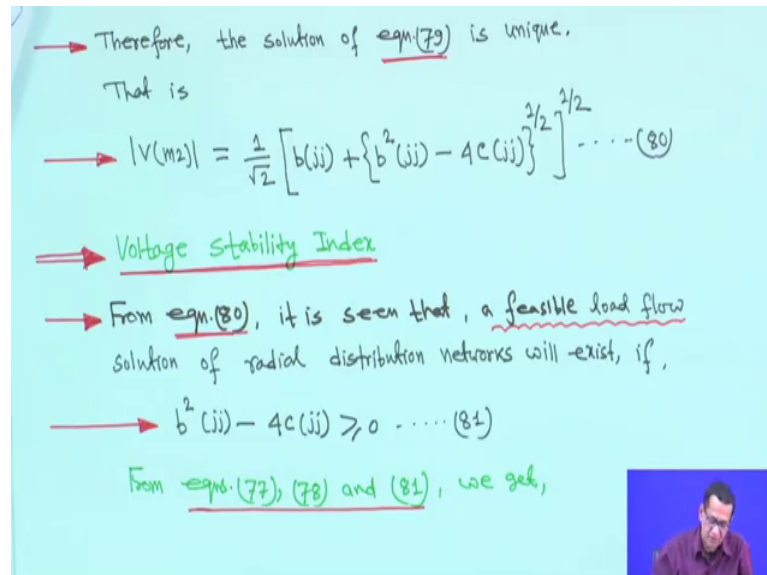 Therefore, the solution of eqn.(79) is unique.
That is
|V(m2)| = 1/√2 [b(jj) + {b²(jj) - 4c(jj)}^1/2]^1/2 ..... (80)
Voltage Stability Index
From eqn.(80), it is seen that, a feasible load flow
solution of radial distribution networks will exist, if,
b²(jj) - 4c(jj) ⩾ 0 ..... (81)
From eqns.(77), (78) and (81), we get,